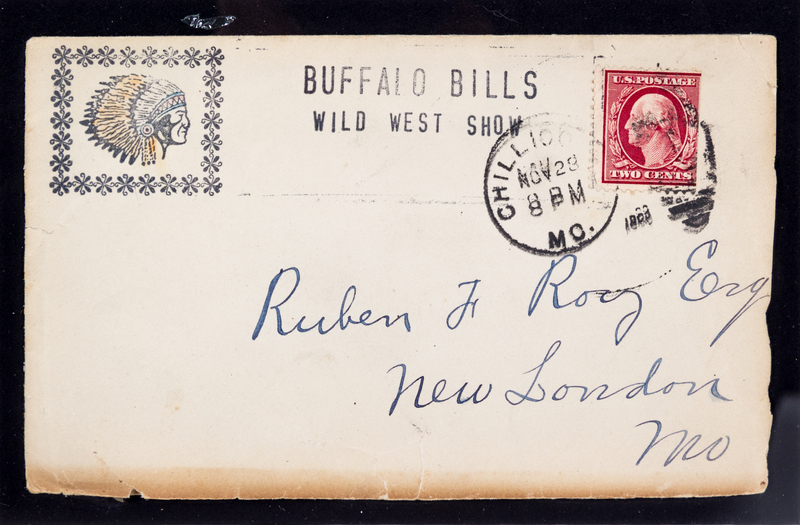 BUFFALO BILLS
WILD WEST SHOW
U.S. POSTAGE
TWO CENTS
CHILLICO
NOV 28
8 PM
MO.
Ruben F Roy Esq
New London
Mo